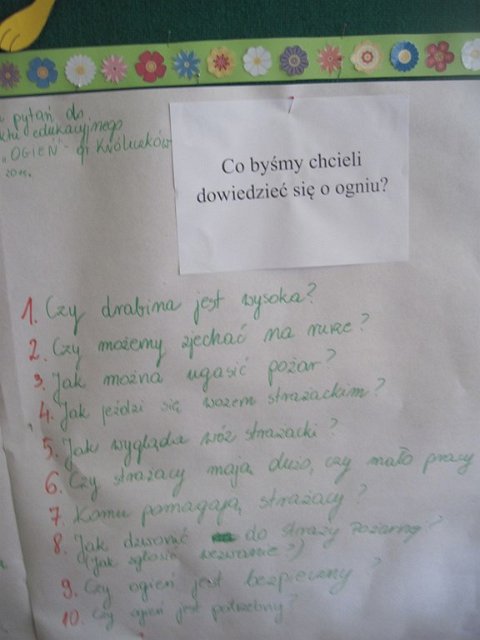 pytań do
edukacyjnego
"OGIEŃ" - gr. Króliczków
Co byśmy chcieli
dowiedzieć się o ogniu?
1. Czy drabina jest wysoka?
2. Czy możemy zjechać na rurze?
3. Jak można ugasić pożar?
4. Jak jeździ się wozem strażackim?
5. Jak wygląda wóz strażacki?
6. Czy strażacy mają dużo, czy mało pracy
7. Komu pomagają strażacy?
8. Jak dzwonić do Straży Pożarnej?
(jak zgłosić wezwanie?)
9. Czy ogień jest bezpieczny?
10. Czy ogień jest potrzebny?